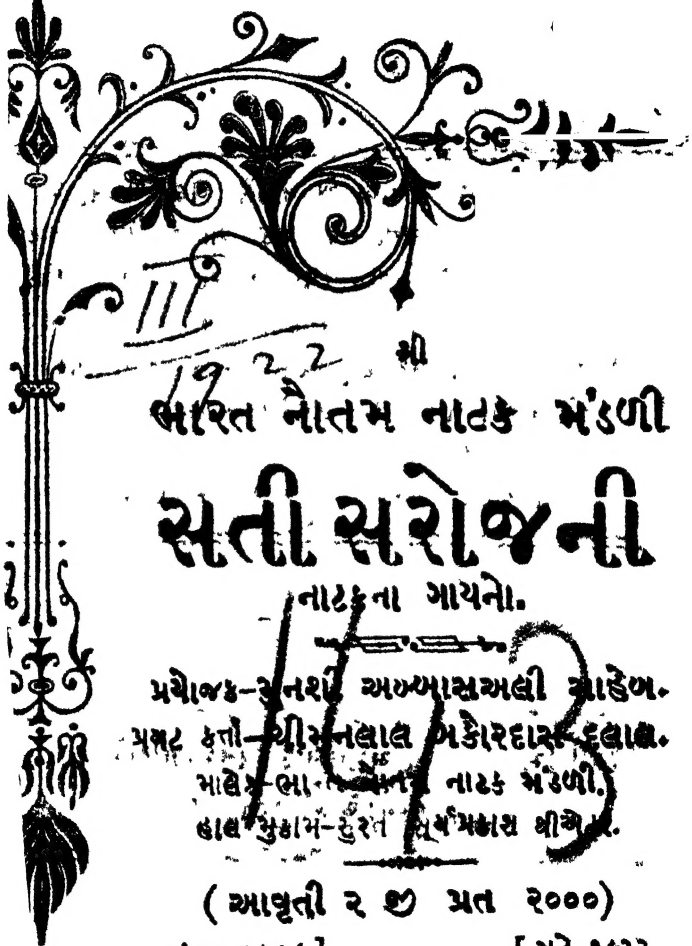 III
1922
શ્રી
ભારત નૌતમ નાટક મંડળી
સતી સરોજની
નાટકના ગાયનો.
પ્રયોજક-મુનશી અબ્બાસઅલી સાહેબ.
પ્રગટ કર્તા-ચીમનલાલ બકોરદાસ દલાલ.
માલેક-ભારત નૌતમ નાટક મંડળી.
હાલ મુકામ-સુરત સૂર્યપ્રકાશ થીએટર.
143
(આવૃતી ૨ જી પ્રત ૨૦૦૦)